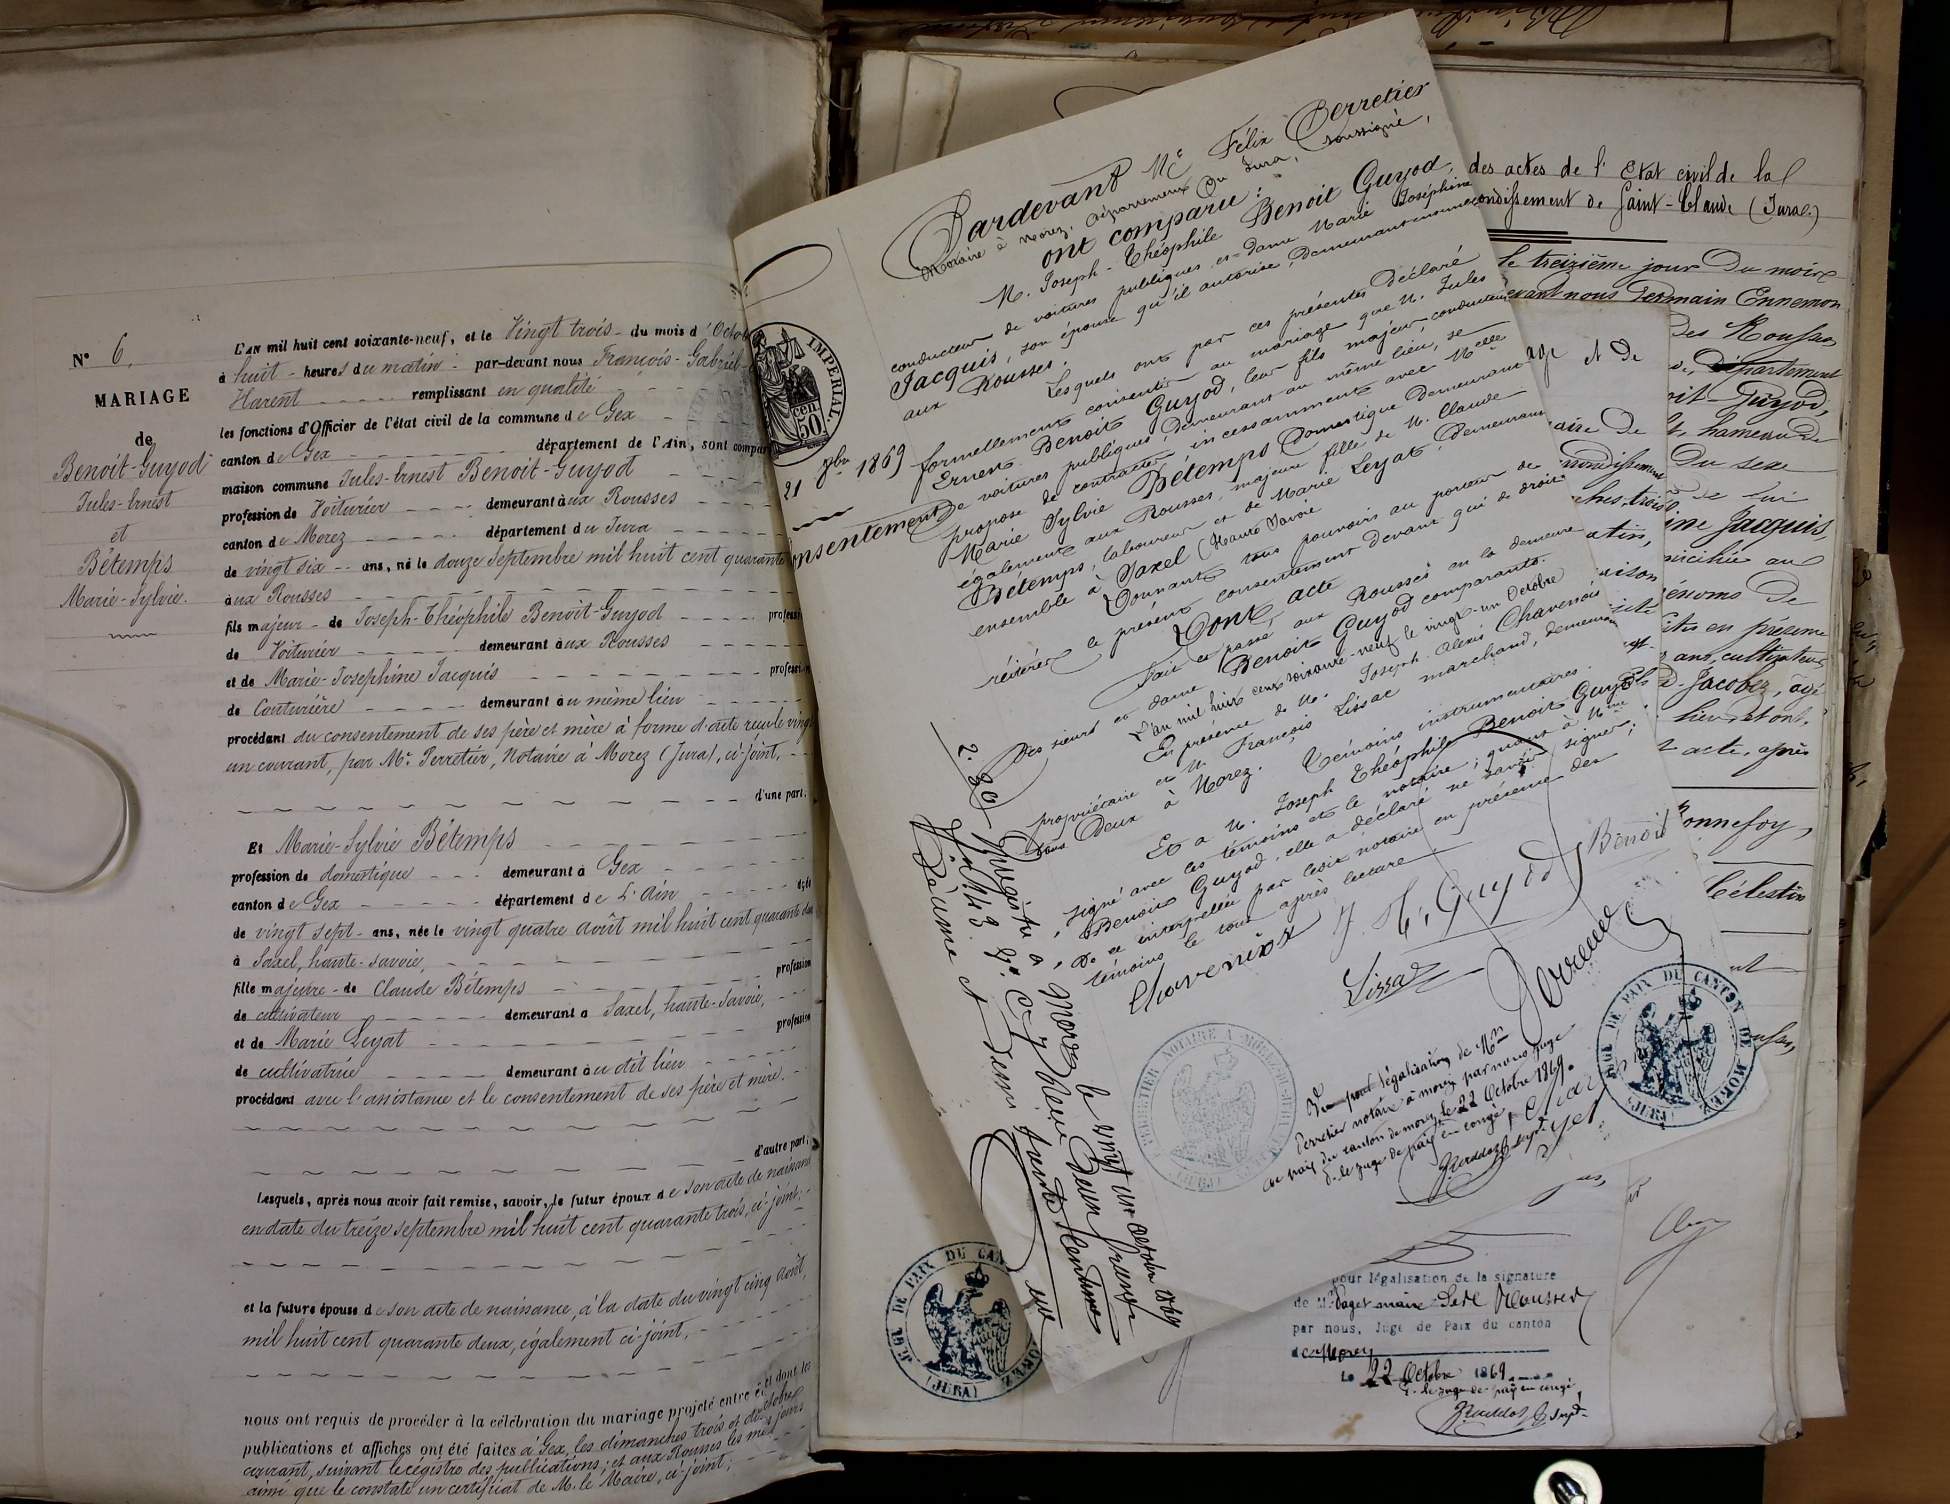 N° 6.
MARIAGE
de
Benoit-Guyod
Jules-Ernest
et
Bétemps
Marie-Sylvie.
L'an mil huit cent soixante-neuf, et le Vingt trois du mois d'Octob
à huit heures du matin par-devant nous François-Gabriel
Harent remplissant en qualité
les fonctions d'Officier de l'état civil de la commune de Gex
canton de Gex département de l'Ain, sont compar
maison commune Jules-Ernest Benoit-Guyod
profession de Voiturier demeurant aux Rousses
canton de Morez département du Jura
de vingt six ans, né le douze Septembre mil huit cent quarante
aux Rousses
fils majeur de Joseph-Théophile Benoit-Guyod professi
de Voiturier demeurant aux Rousses
et de Marie-Josephine Jacquis profession
de Couturière demeurant au même lieu
procédant du consentement de ses père et mère à forme d'acte reçu le vingt
un courant, par Me Perretier, Notaire à Morez (Jura), ci-joint,
d'une part.
Et Marie-Sylvie Bétemps
profession de domestique demeurant à Gex
canton de Gex département de L'Ain âgée
de vingt sept ans, née le vingt quatre août mil huit cent quarante deux
à Saxel, haute-savoie,
fille majeure de Claude Bétemps profession
de cultivateur demeurant à Saxel, haute-Savoie,
et de Marie Leyat profession
de cultivatrice demeurant au dit lieu
procédant avec l'assistance et le consentement de ses père et mère.
d'autre part;
Lesquels, après nous avoir fait remise, savoir, le futur époux de son acte de naissance
en date du treize septembre mil huit cent quarante trois, ci-joint;
et la future épouse de son acte de naissance, à la date du vingt cinq août,
mil huit cent quarante deux, également ci-joint,
nous ont requis de procéder à la célébration du mariage projeté entre et dont les
publications et affiches ont été faites à Gex, les dimanches trois et dix octobre
courant, suivant le régistre des publications; et aux Rousses les mêmes jours
ainsi que le constate un certificat de M. le Maire, ci-joint;
IMPERIAL.
50 cen.
21 8bre 1869
Consentement
Pardevant Me Félix Perretier
Notaire à Morez, Département du Jura, soussigné,
ont comparu:
M. Joseph-Théophile Benoit Guyod,
conducteur de voitures publiques et dame Marie Joséphine
Jacquis, son épouse qu'il autorise, demeurant ensemble
aux Rousses.
Lesquels ont par ces présentes déclaré
formellement consentir au mariage que M. Jules
Ernest Benoit Guyod, leur fils majeur, conducteur
de voitures publiques, demeurant au même lieu, se
propose de contracter incessamment avec Melle
Marie Sylvie Bétemps Domestique demeurant
également aux Rousses, majeure fille de M. Claude
Bétemps, laboureur et de Marie Leyat, demeurant
ensemble à Saxel (Haute Savoie
Donnant tous pouvoirs au porteur de
réitérer le présent consentement devant qui de droit
Dont acte
Fait et passé aux Rousses en la demeure
Des sieurs et dame Benoit Guyod comparants.
L'an mil huit cent soixante-neuf le vingt-un Octobre
En présence de M. Joseph Alexis Chavenois
propriétaire et M. François Lissac marchand, demeurant
tous deux à Morez. Témoins instrumentaires.
Et a M. Joseph Théophile Benoit Guyod
signé avec les témoins et le notaire; quant à Mme
Benoit Guyod, elle a déclaré ne savoir signer;
de ce interpellée par ledit notaire en présence des
témoins le tout après lecture
J. T. Guyod Benoit
Lissac
2.30
Enregistré à Morez le vingt un octobre 1869
PERRETIER NOTAIRE A MOREZ
Vu pour légalisation de Me
Perretier notaire à morez par nous juge
de paix du canton de morez, le 22 Octobre 1869.
p. le juge de paix en congé,
JUGE DE PAIX DU CANTON DE MOREZ
(JURA)
JUGE DE PAIX DU CAN
OREZ
(JURA)
pour légalisation de la signature
de M. Paget maire des Rousses
par nous, Juge de Paix du canton
de Morez
Le 22 Octobre 1869
p. le juge de paix en congé,
des actes de l'Etat civil de la
ondissement de Saint-Claude (Jura.)
le treizième jour du mois
evant nous Germain Ennemon
des Rousses
département
oit-Guyod,
hameau de
du sexe
de lui
ine Jacquis,
icilié aux
énoms de
ites en présence
ans, cultivateur
Jacobez, agé
lieu et ont
acte, après
onnefoy,
Célestin
age et de
aire de
ondissement
atin,
aison